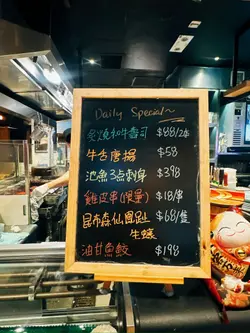 Daily Special~
炙燒和牛壽司 $88/2件
牛舌唐揚 $58
池魚3点刺身 $398
雞皮串(限量) $18/串
昆布森仙鳳趾 $68/隻
生蠔
油甘魚鮫 $198